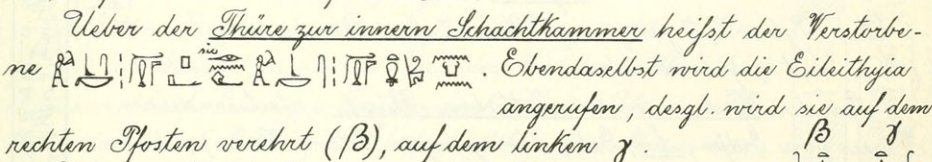 Ueber der Thüre zur innern Schachtkammer heißt der Verstorbe-
ne . Ebendaselbst wird die Eileithyia
angerufen, desgl. wird sie auf dem
rechten Pfosten verehrt (β), auf dem linken γ. β γ